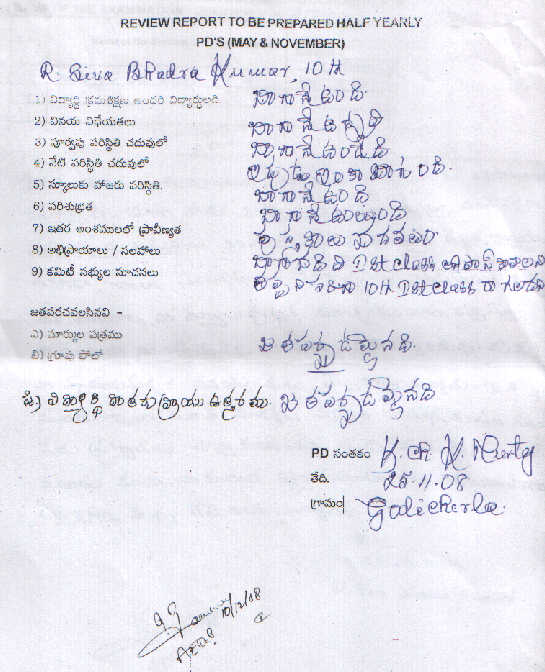 REVIEW REPORT TO BE PREPARED HALF YEARLY
PD'S (MAY & NOVEMBER)
R. Siva Bhadra Kumar, 10th
1) విద్యార్థి క్రమశిక్షణ ఇందలి విద్యార్థులది బాగానే ఉంది.
2) వినయ విధేయతలు బాగానే ఉన్నాయి
3) పూర్వపు పరిస్థితి చదువులో బాగానే ఉండేది
4) నేటి పరిస్థితి చదువులో ఇప్పుడు ఇంకా బాగుంది.
5) స్కూలుకు హాజరు పరిస్థితి. బాగానే ఉంది
6) పరిశుభ్రత బాగానే ఉంటుంది
7) ఇతర అంశములలో ప్రావీణ్యత పుస్తకాలు చదవటం
8) అభిప్రాయాలు / సలహాలు 1st class లో పాస్ కావాలని
9) కమిటీ సభ్యుల సూచనలు తప్పనిసరిగా 10th 1st class రాగలడు
జతపరచవలసినవి -
ఎ) మార్కుల పత్రము జతపర్చడమైనది.
బి) గ్రూపు ఫోటో
విద్యార్థి ఉత్తరము జతపర్చడమైనది
PD సంతకం K. Ch. K. Murty
తేది. 25.11.08
గ్రామం Galicherla.
10/12/08